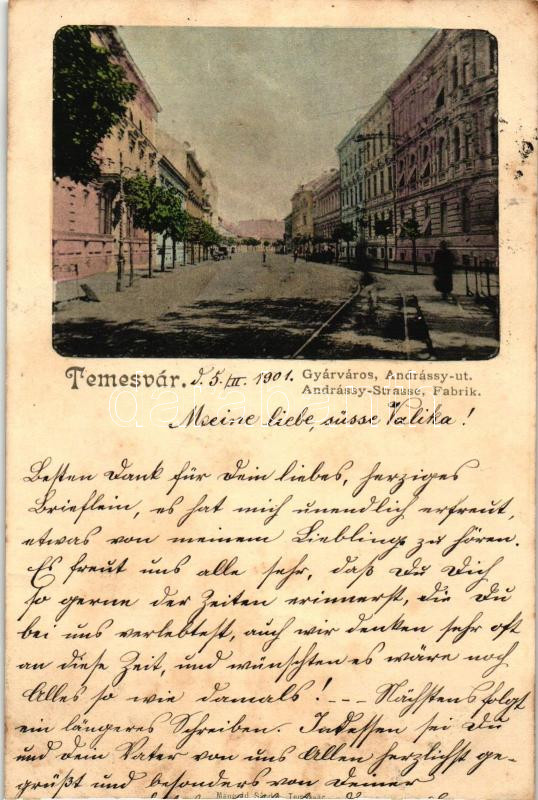 Temesvár. d. 5./II. 1901. Gyárváros, Andrássy-ut.
Andrássy-Strasse, Fabrik.
Meine liebe, süsse Valika!
Besten Dank für Dein liebes, herziges
Brieflein, es hat mich unendlich erfreut,
etwas von meinem Liebling zu hören.
Es freut uns alle sehr, daß Du Dich
so gerne der Zeiten erinnerst, die Du
bei uns verlebtest, auch wir denken sehr oft
an diese Zeit, und wünschten es wäre noch
Alles so wie damals! --- Nächstens folgt
ein längeres Schreiben. Indessen sei Du
und dein Vater von uns Allen herzlichst ge-
grüßt und besonders von Deiner